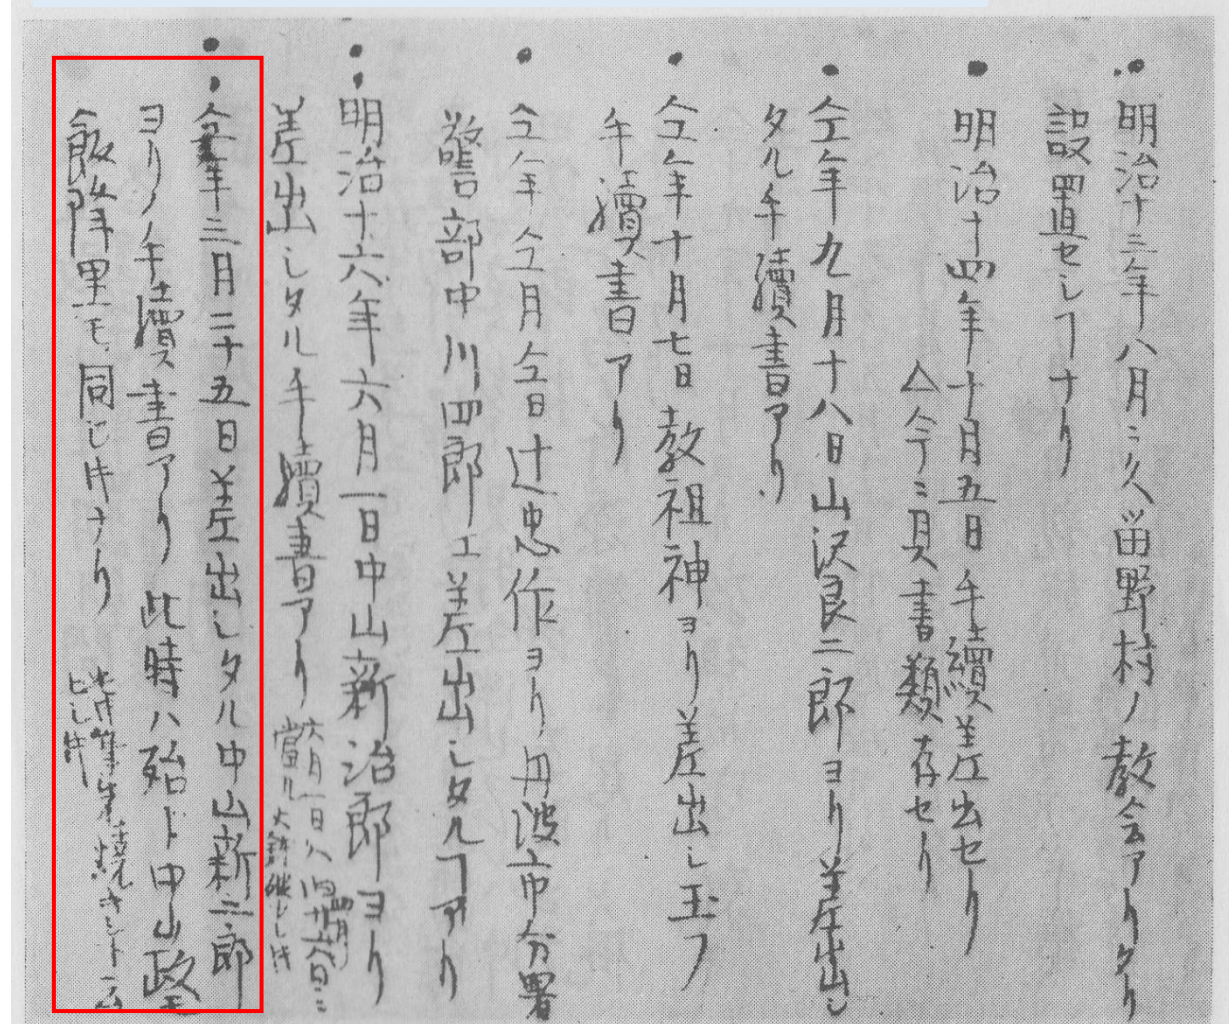 明治十三年八月ニ久畄野村ノ教会アリタリ
設置セシヿナリ
明治十四年十月五日手續差出セリ
△今ニ其書類存セリ
仝年九月十八日山沢良二郎ヨリ差出シ
タル手續書アリ
仝年十月七日教祖神ヨリ差出シ玉フ
手續書アリ
仝年仝月仝日辻忠作ヨリ丹波市分署
警部中川四郎エ差出シタルヿアリ
明治十六年六月一日中山新治郎ヨリ
差出シタル手續書アリ
六月一日ハ旧四月廿六日ニ
當ル大
仝年三月二十五日差出シタル中山新二郎
ヨリノ手續書アリ此時ハ殆ド中山政
飯降里モ同じ件ナリ